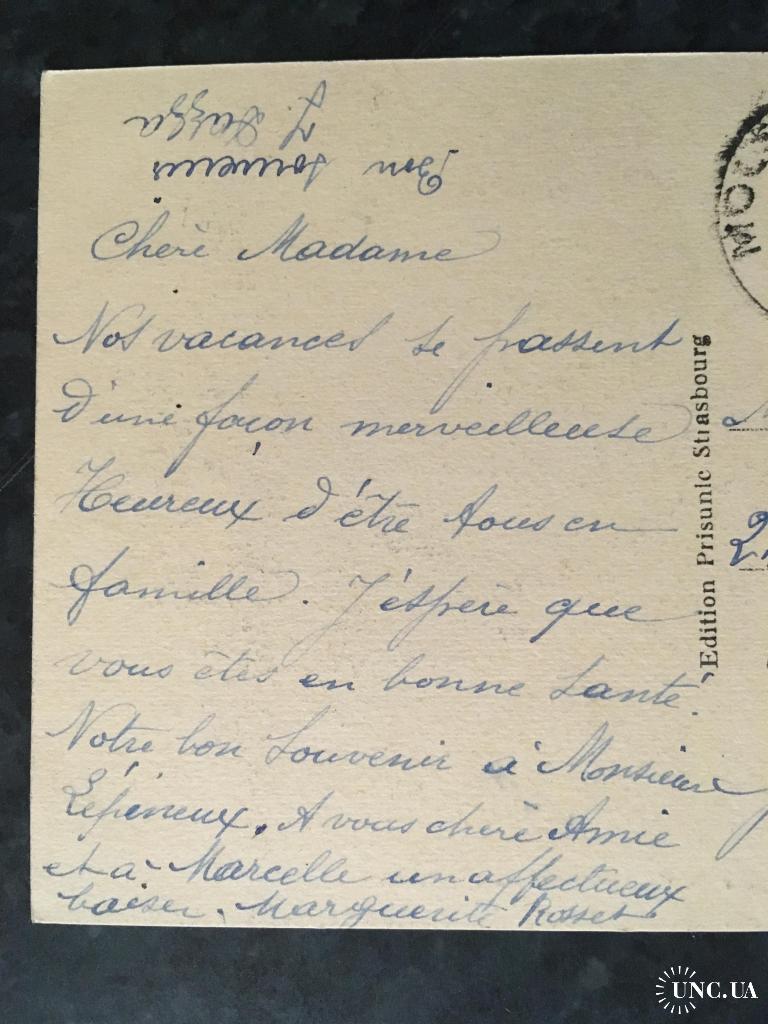 Bon souvenir
J.
Cherè Madame
Nos vacances se passent
d'une façon merveilleuse
Heureux d'être tous en
famille. J'éspère que
vous êtes en bonne santé.
Notre bon souvenir à Monsieur
Lépineux. A vous cherè Amie
et à Marcelle un affectueux
baiser. Marguerite Rosset
Edition Prisunic Strasbourg
МОСК
UNC.UA